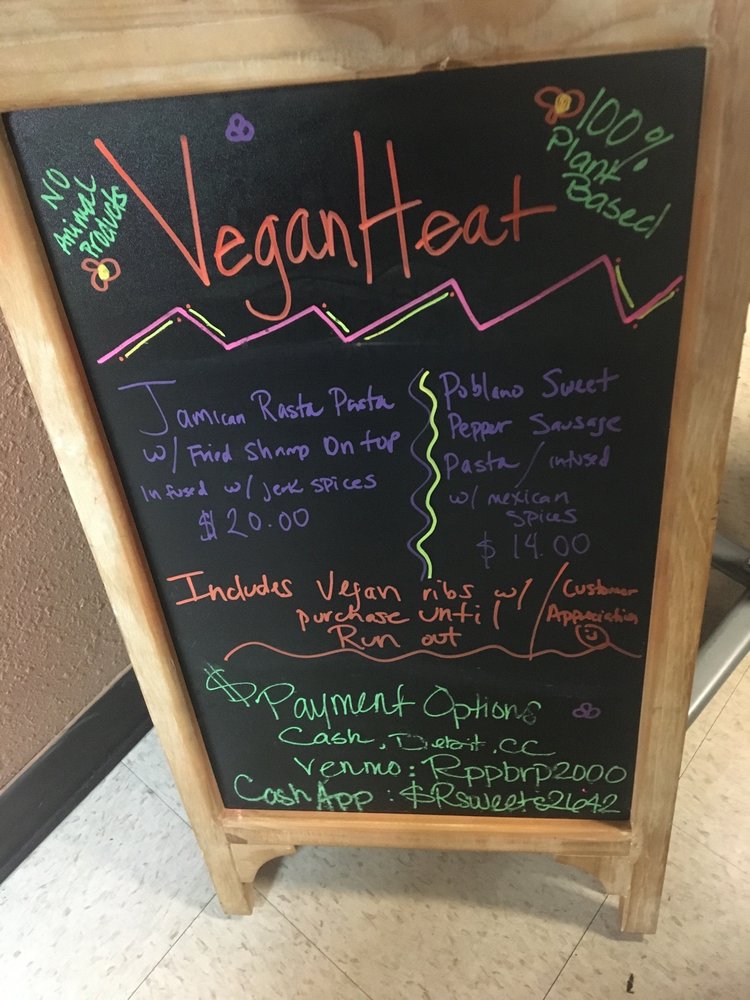 NO
Animal
Products
VeganHeat
100%
Plant
Based
Jamican Rasta Pasta
w/ Fried Shrmp On top
Infused w/ jerk spices
$20.00
Poblano Sweet
Pepper Sausage
Pasta / infused
w/ mexican
spices
$14.00
Includes Vegan ribs w/
purchase until
Run out
/ Customer
Appreciation
$Payment Options
Cash, Debit, CC
Venmo: Rppbrp2000
Cash App: